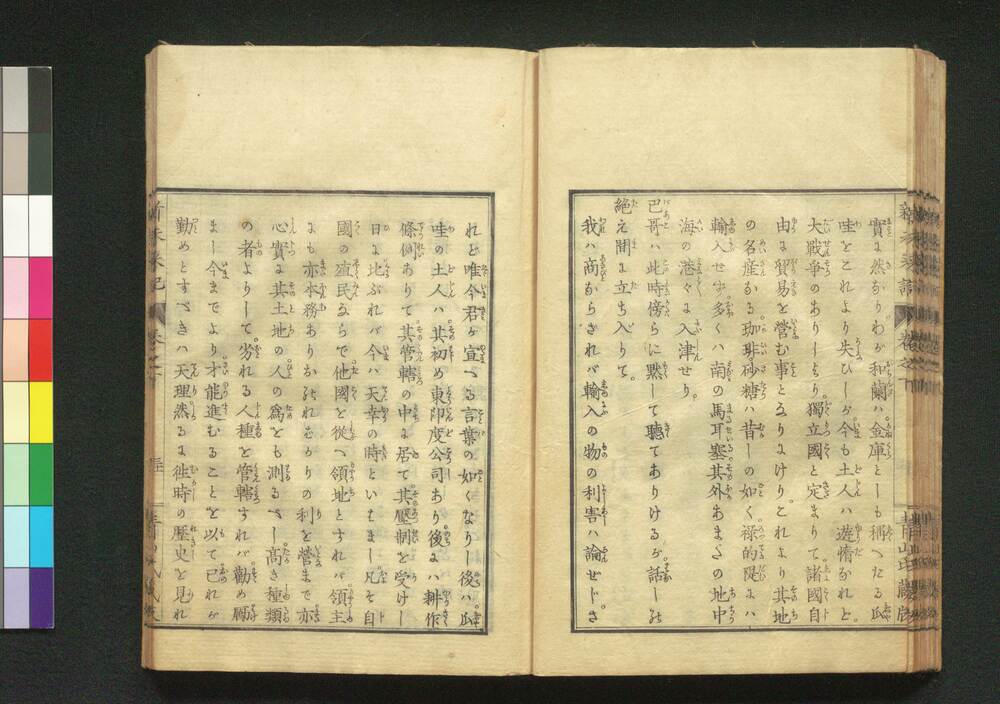 實に然なりわが和蘭ハ金庫とーも稱へたる瓜
哇をこれより失ひーが今も土人ハ遊惰なれど
大戰爭のありーより獨立國と定まりて諸國自
由に貿易を營む事となりにけりこれより其地
の名産なる珈琲砂糖ハ昔ーの如く
輸入せず多くハ南の馬耳塞其外あまたの地中
海の港々に入津せり
巴哥ハ此時傍らに默ーて聽てありけるが話ーの
絶え間に立ち入りて
我ハ商ならざれバ輸入の物の利害ハ論ぜじさ
れど唯今君が宣へる言葉の如くなりー後ハ瓜
哇の土人ハ其初め東印度公司あり後にハ耕作
條例ありて其管轄の中に居て其壓制を受けー
日に比ぶれバ今ハ天幸の時といはまー凡そ自
國の殖民ならで他國を從へ領地とすれバ領主
にも亦本務あり己れのりの利を營まで亦
心實に其土地の人の爲とも測るべー高き種類
の者よりーて劣れる人種を管轄すれバ勸め勵
まー今までより才能進むることを以て己れが
勤めとすべきハ天理然るに往時の歴史を見れ